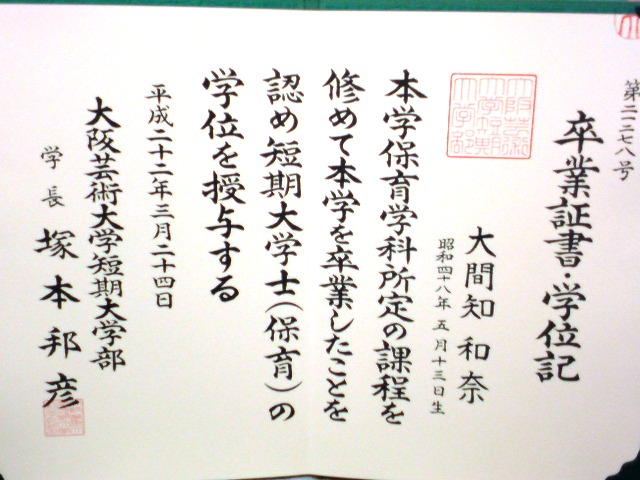 第二二七八号
卒業証書・学位記
大間知 和奈
昭和四十八年 五月十三日生
本学保育学科所定の課程を
修めて本学を卒業したことを
認め短期大学士(保育)の
学位を授与する
平成二十二年三月二十四日
大阪芸術大学短期大学部
学長 塚本邦彦